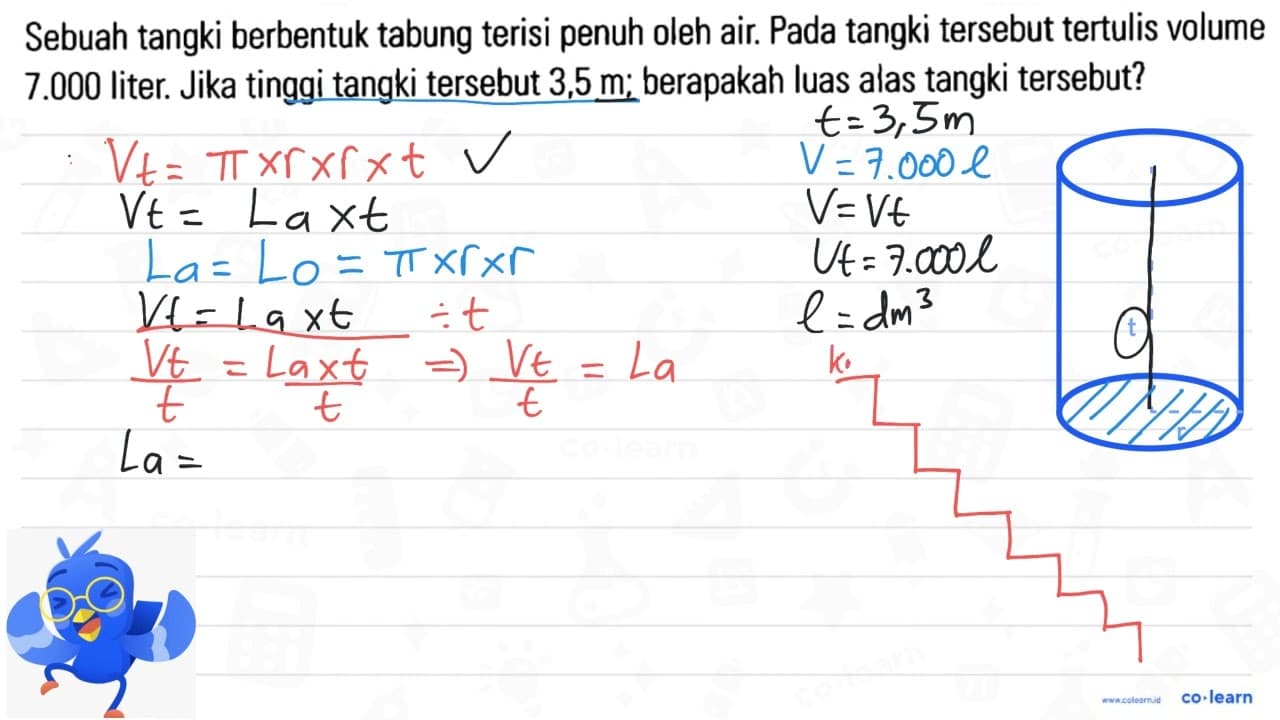 Sebuah tangki berbentuk tabung terisi penuh oleh air. Pada tangki tersebut tertulis volume
7.000 liter. Jika tinggi tangki tersebut 3,5 m; berapakah luas alas tangki tersebut?
Vt = π x r x r x t ✓
Vt = La x t
La = Lo = π x r x r
Vt = La x t ÷ t
Vt/t = La x t/t ⇒ Vt/t = La
La =
t = 3,5 m
V = 7.000 l
V = Vt
Vt = 7.000 l
l = dm³
k
t
r
www.colearn.id co·learn